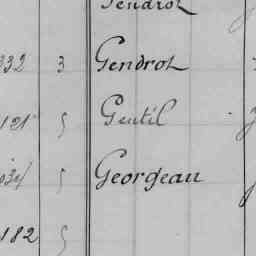 Gendrot
332 3 Gendrot
121 5 Gentil
5 Georgeau
182 5